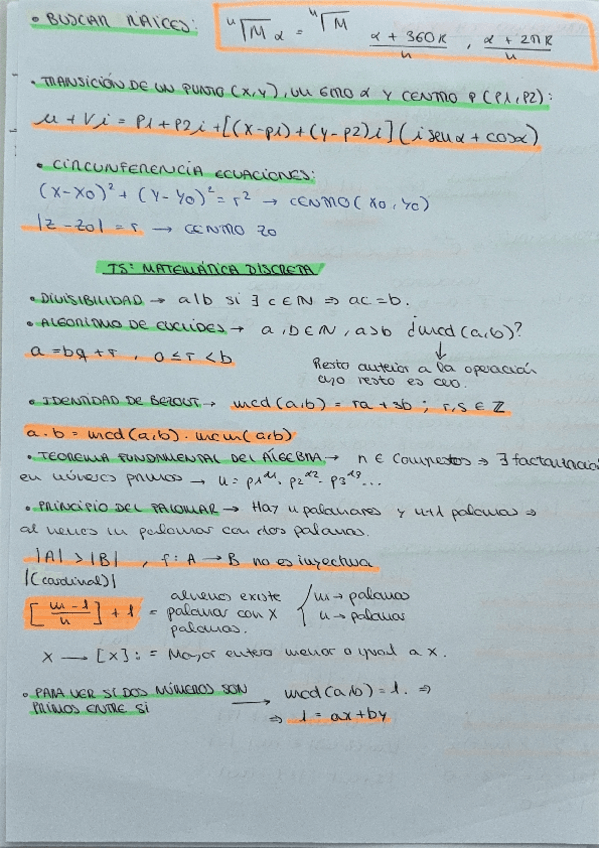 • BUSCAR RAÍCES: ⁿ√M α = ⁿ√M (α + 360K)/n , (α + 2πK)/n
• TRANSICIÓN DE UN PUNTO (X,Y), UN GIRO α Y CENTRO P (P1, P2):
u + Vi = P1 + P2i + [(X-P1) + (Y-P2)i] (i senα + cosα)
• CIRCUNFERENCIA ECUACIONES:
(X-X0)² + (Y-Y0)² = r² → CENTRO (X0, Y0)
|Z-Z0| = r → CENTRO Z0
T5: MATEMÁTICA DISCRETA
• DIVISIBILIDAD → a|b si ∃ c ∈ ℕ ⇒ ac = b.
• ALGORITMO DE EUCLIDES → a, b ∈ ℕ, a>b ¿mcd (a,b)?
a = bq + r , 0 ≤ r < b
↓
Resto anterior a la operación
cuyo resto es cero.
• IDENTIDAD DE BEZOUT → mcd (a,b) = ra + sb ; r,s ∈ ℤ
a·b = mcd (a,b) · mcm (a,b)
• TEOREMA FUNDAMENTAL DEL ÁLGEBRA → n ∈ Compuestos ⇒ ∃ factorización
en números primos → n = p1^α1 · p2^α2 · p3^α3 ...
• PRINCIPIO DEL PALOMAR → Hay n palomares y n+1 palomas ⇒
al menos un palomar con dos palomas.
|A| > |B| , f: A → B no es inyectiva
|(cardinal)|
[(m-1)/n] + 1 = al menos existe palomar con X palomas. { m → palomas
n → palomar
X → [X] : = Mayor entero menor o igual a x.
• PARA VER SI DOS NÚMEROS SON → mcd (a,b) = 1. ⇒
PRIMOS ENTRE SI ⇒ 1 = ax + by